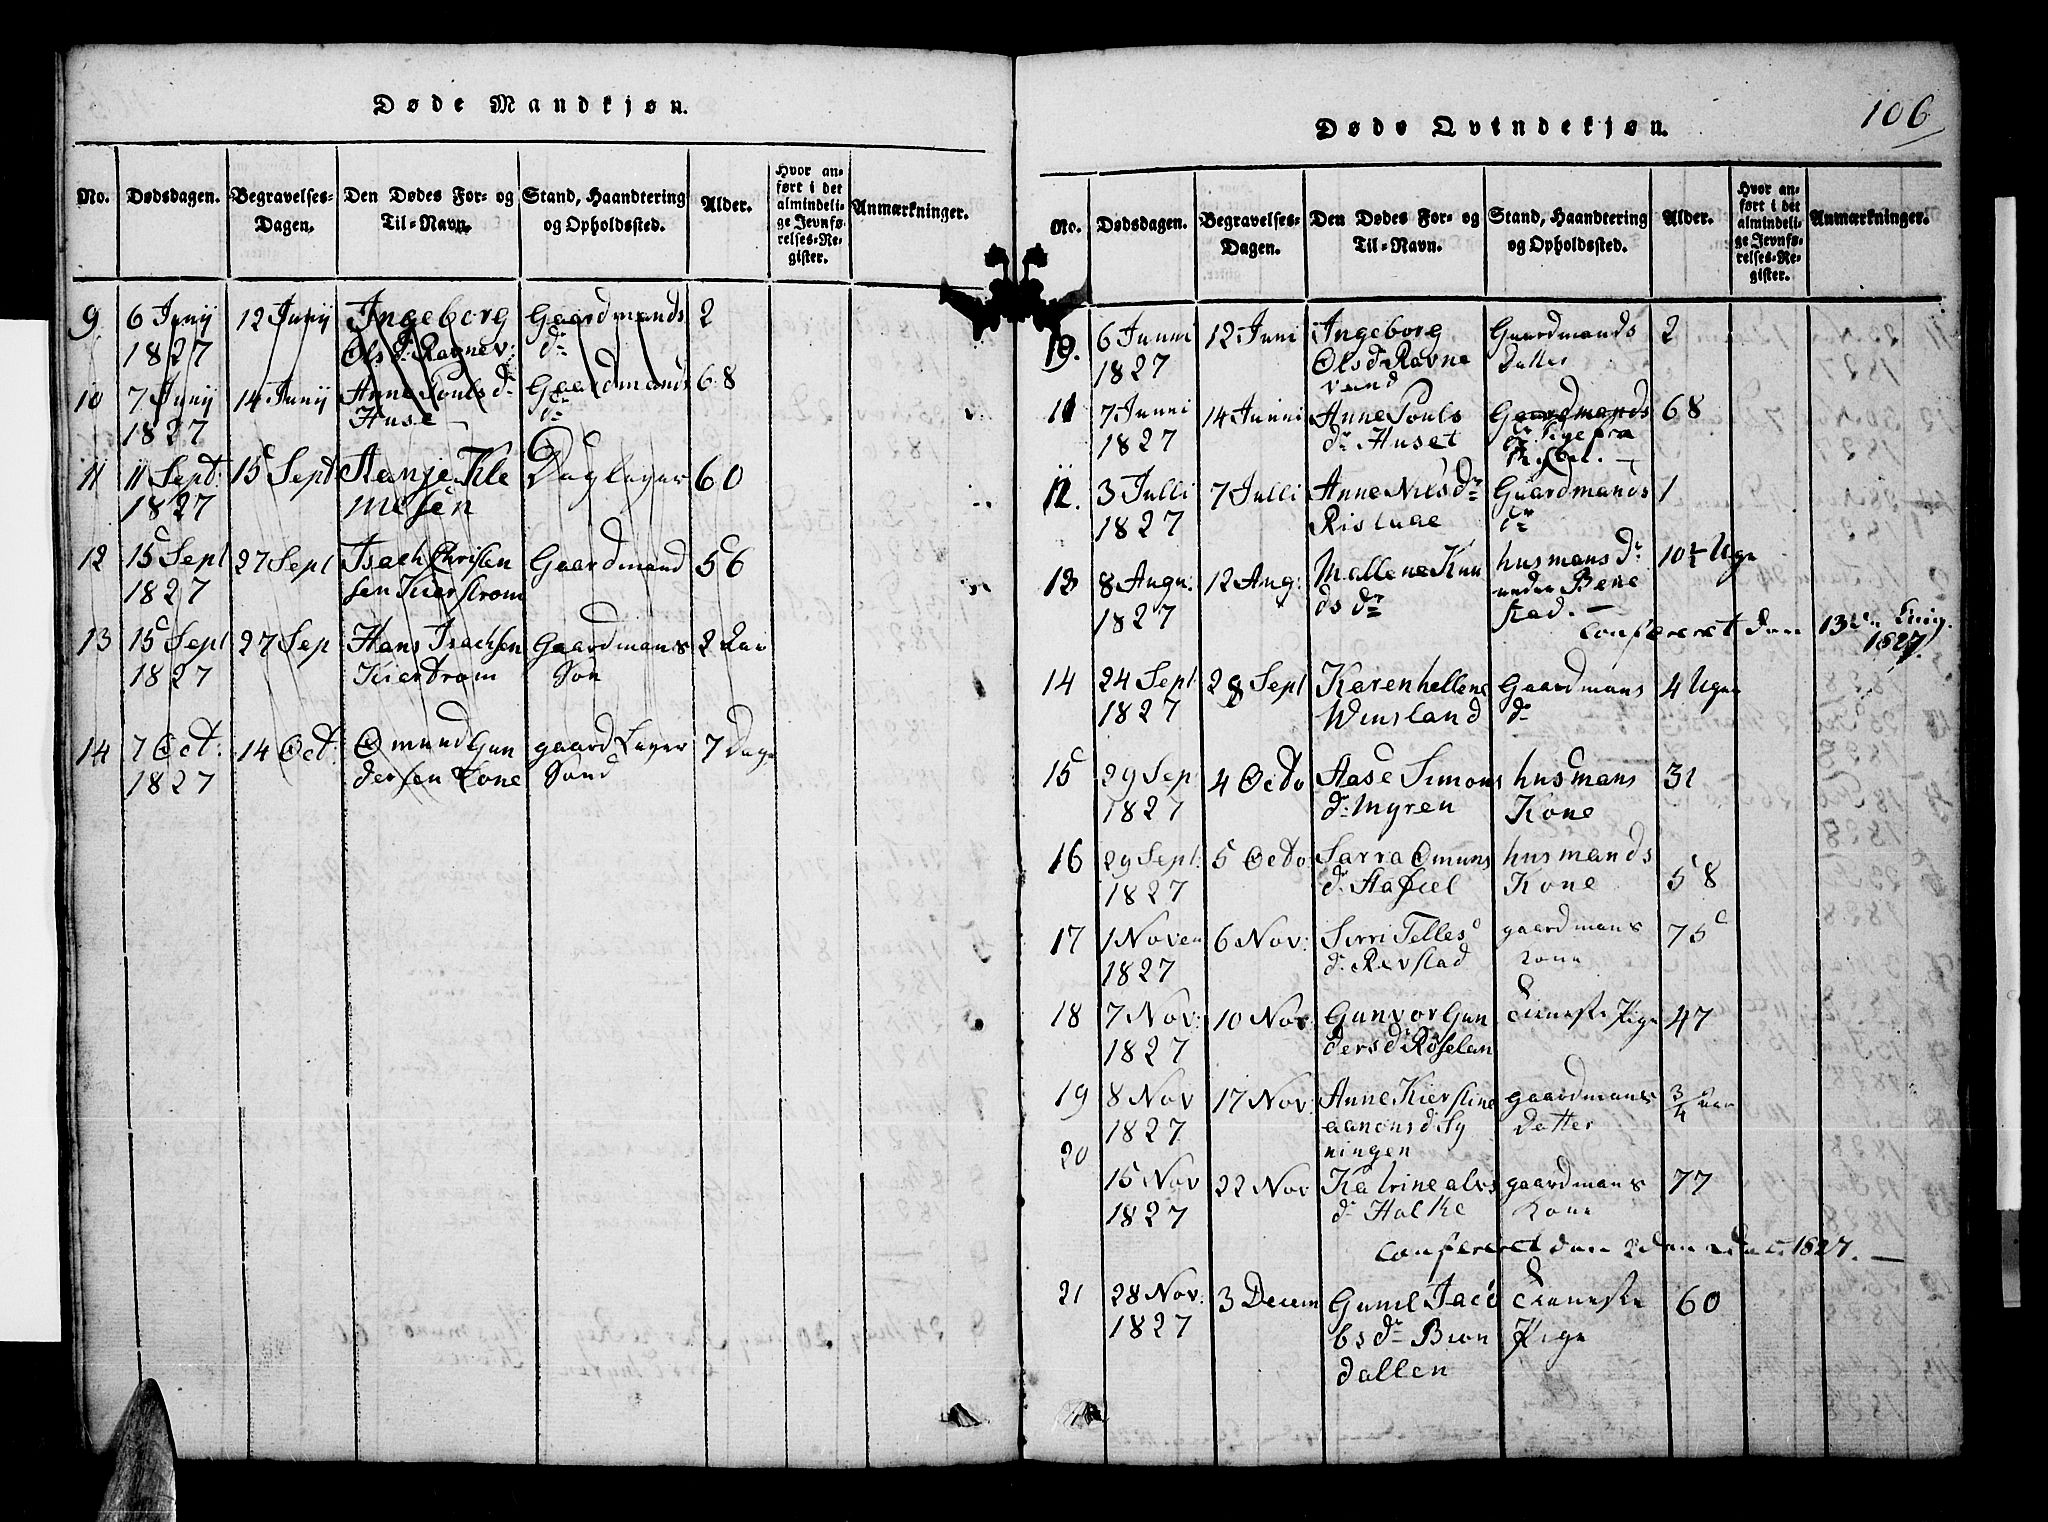 Døde Mandkjøn.
No. Dødsdagen. Begravelses-Dagen. Den Dødes For- og Til-Navn. Stand, Haandtering og Opholdssted. Alder. Hvor anført i det almindelige Jevnførelses-Register. Anmærkninger.
9 6 Junij 12 Junij Ingeborg Gaardmands 2
1827 Ols d: Ravnev: d:
10 7 Junij 14 Junij Anne Pouls d: Gaardmands 68
1827 Huse d:
11 11 Sept: 15 Sept Aanje Kle Dagleger 60
1827 mesen
12 15 Sept 27 Sept Isach Christen Gaardmand 56
1827 sen Kierstrom
13 15 Sept 27 Sep Hans Isachsen Gaardmans 2 Aar
1827 Kierstrom Søn
14 7 Oct: 14 Oct: Omund Gun gaard 7 Dage
1827 dersen Sønd
106
Døde Qvindekjøn.
No. Dødsdagen. Begravelses-Dagen. Den Dødes For- og Til-Navn. Stand, Haandtering og Opholdssted. Alder. Hvor anført i det almindelige Jevnførelses-Register. Anmærkninger.
6 Junni 12 Juni Ingeborg Gaardmands 2
1827 Olsd: Ravne Datter
vand
11 7 Junni 14 Junni Anne Pouls Gaardmands 68
1827 d: Huset
12. 3 Julli 7 Julli Anne Nils d: Gaardmands 1
1827 d:
13 8 Augu: 12 Aug: Mallene Knu husmans d: 10½ Uge
1827 ds d: under Bene
stad. —
Confereret den 13de
1827.
14 24 Sept: 28 Sept Karen hellene Gaardmans 4 Uger
1827 Winsland d:
15 29 Sep 4 Octo Aase Simons husmans 31
1827 d: Myren Kone
16 29 Sept: 5 Octo Sarra Omuns husmands
1827 d: Kone 58
17 1 Noven 6 Nov: Sirri Telles gaardmans 75
1827 d: Revstad Kone
18 7 Nov: 10 Nov: Gunvor Gun Tieneste Pige 47
1827 ders d: Røselan
19 8 Nov 17 Nov: Anne Kierstine gaardmans ¾ aar
1827 aanons d: Sy Datter
20 ningen
15 Nov 22 Nov Katrine alvs gaardmans 77
1827 d: Holke Kone
Confereret den 2den Dec: 1827. —
21 28 Nov: 3 Decem Gunil Jaco Tieneste 60
1827 bs d: Bion Pige
dallen